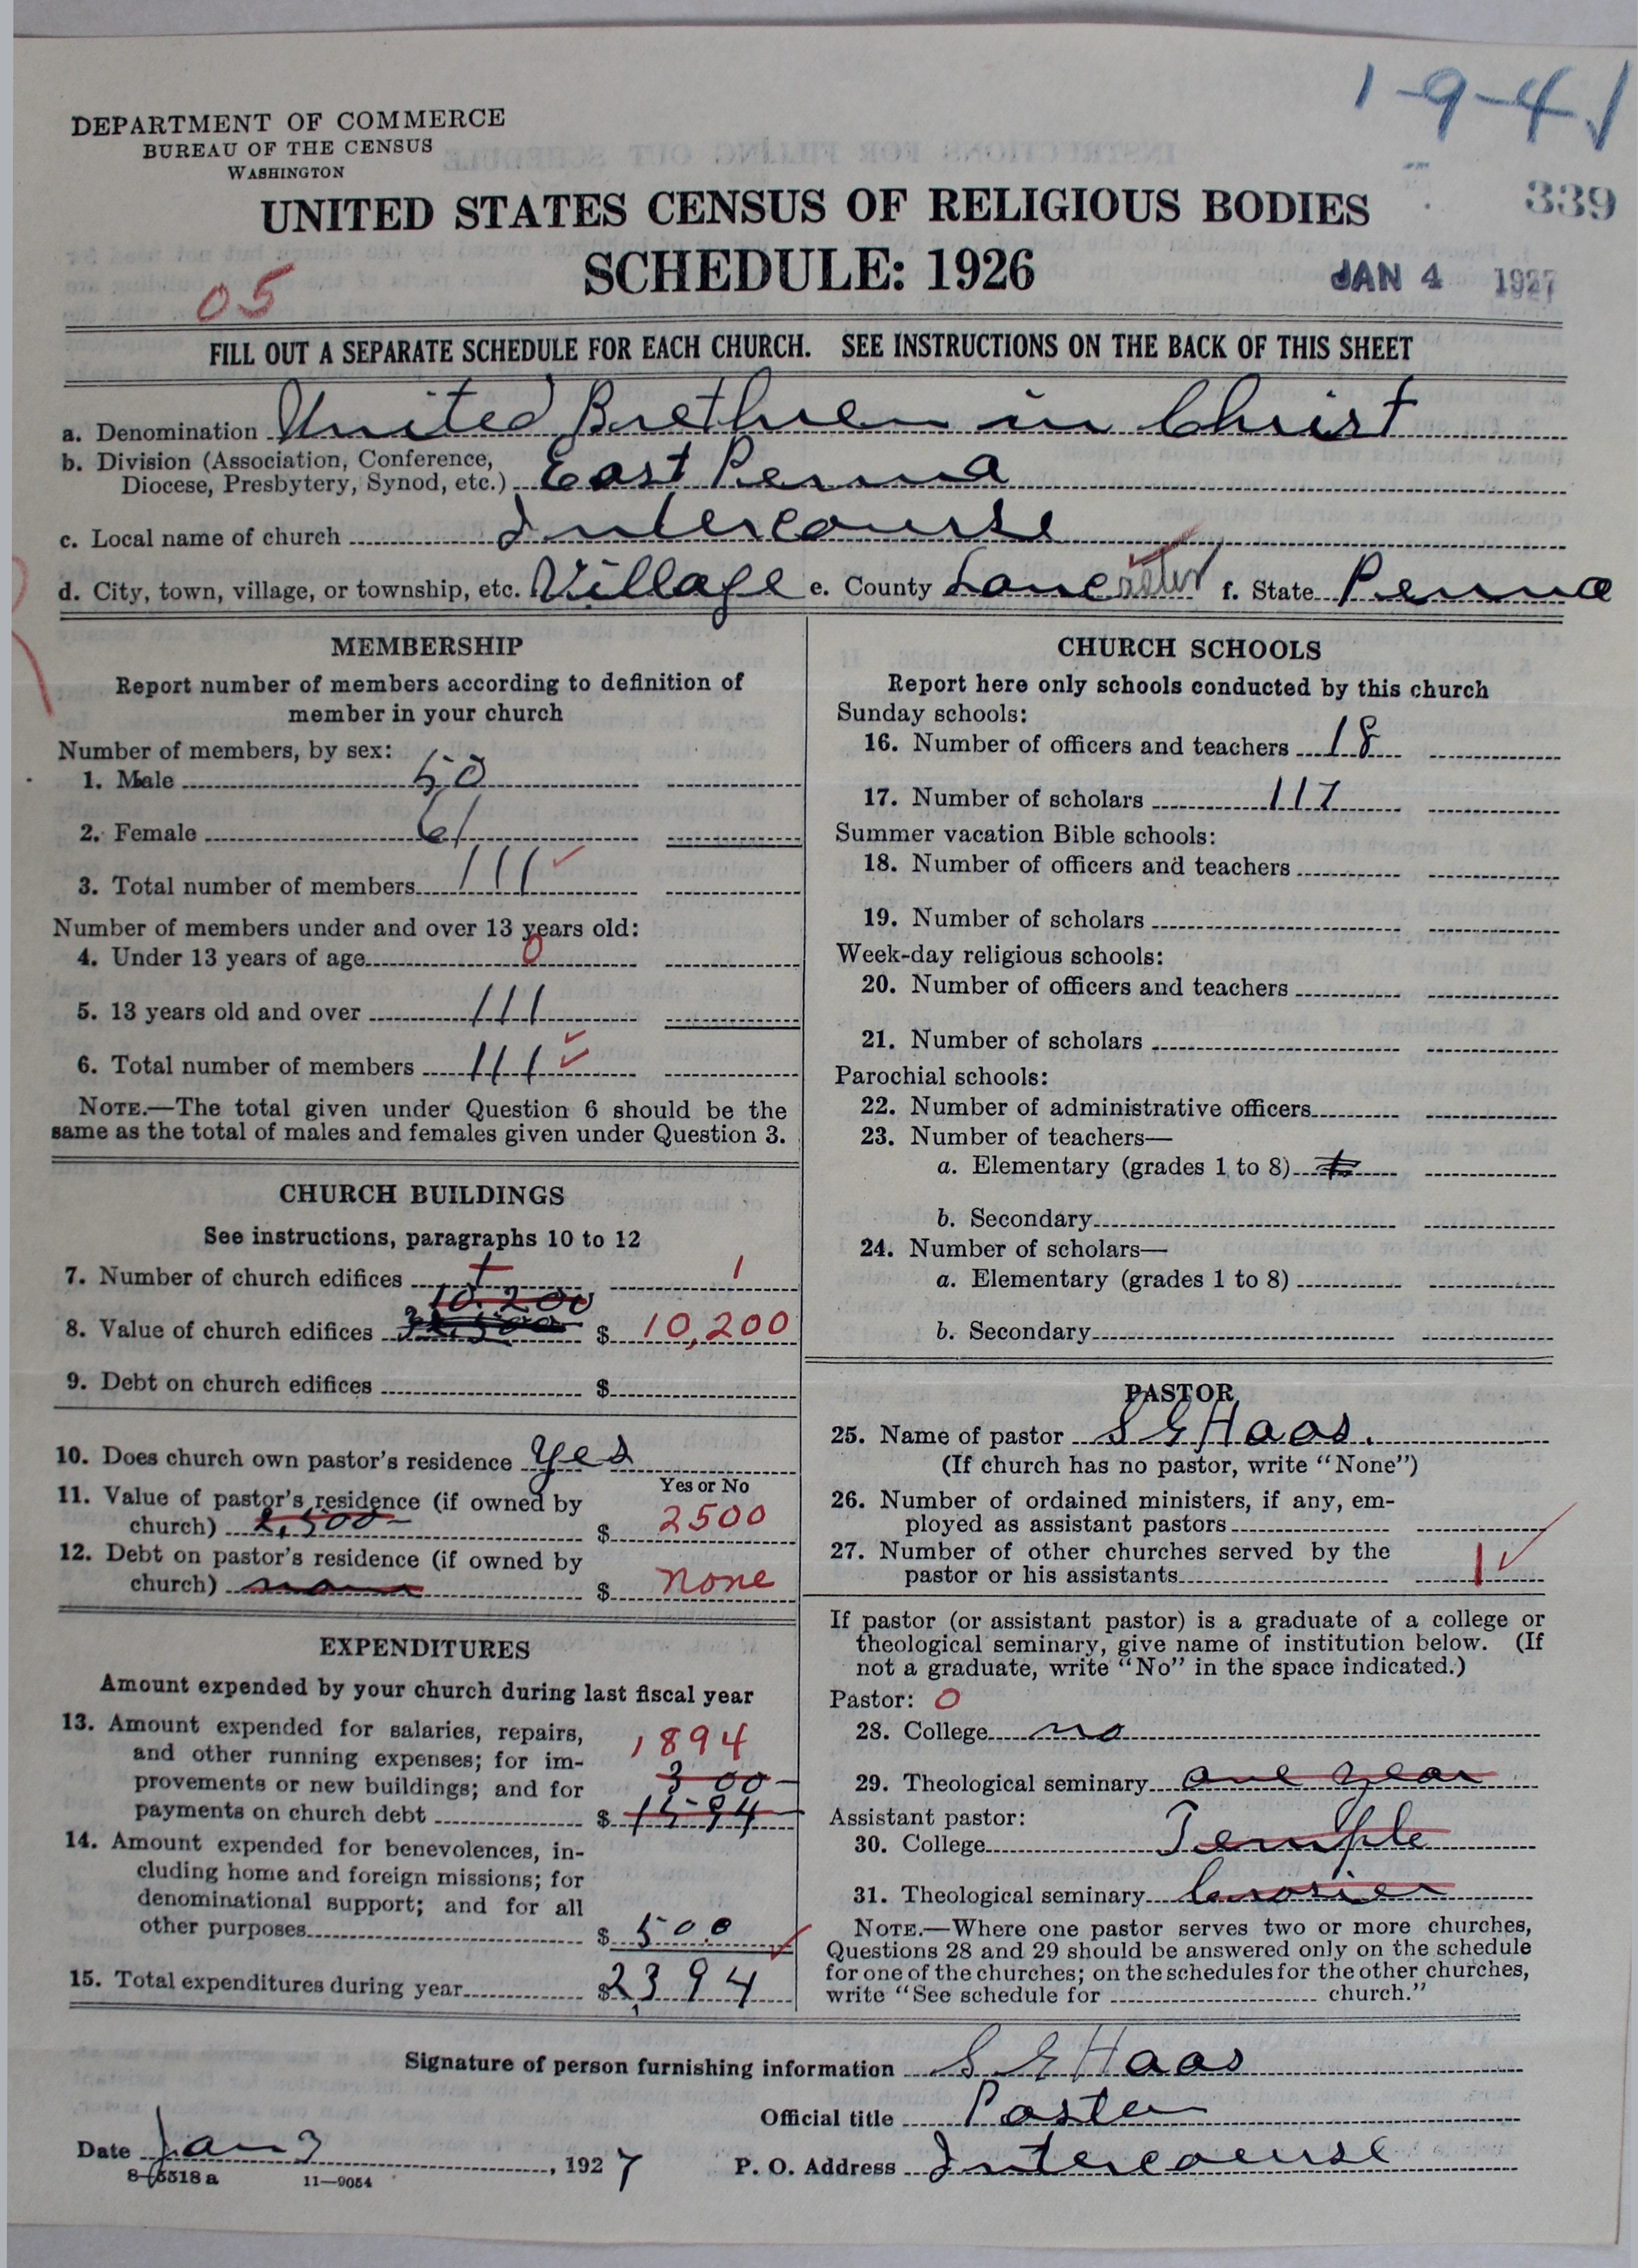 1-9-41
DEPARTMENT OF COMMERCE
BUREAU OF THE CENSUS
WASHINGTON
339
UNITED STATES CENSUS OF RELIGIOUS BODIES
SCHEDULE: 1926
05
JAN 4 1927
FILL OUT A SEPARATE SCHEDULE FOR EACH CHURCH. SEE INSTRUCTIONS ON THE BACK OF THIS SHEET
a. Denomination United Brethren in Christ
b. Division (Association, Conference,
Diocese, Presbytery, Synod, etc.) East Penna
c. Local name of church Intercourse
d. City, town, village, or township, etc. Village e. County Lancaster f. State Penna
MEMBERSHIP
Report number of members according to definition of
member in your church
Number of members, by sex:
1. Male 50
2. Female 61
3. Total number of members 111
Number of members under and over 13 years old:
4. Under 13 years of age 0
5. 13 years old and over 111
6. Total number of members 111
NOTE.—The total given under Question 6 should be the
same as the total of males and females given under Question 3.
CHURCH BUILDINGS
See instructions, paragraphs 10 to 12
7. Number of church edifices 1 1
10.200
8. Value of church edifices $ 10,200
9. Debt on church edifices $
10. Does church own pastor's residence yes
Yes or No
11. Value of pastor's residence (if owned by
church) 2,500 $ 2500
12. Debt on pastor's residence (if owned by
church) none $ none
EXPENDITURES
Amount expended by your church during last fiscal year
13. Amount expended for salaries, repairs,
and other running expenses; for im- 1894
provements or new buildings; and for 300
payments on church debt $ 1594
14. Amount expended for benevolences, in-
cluding home and foreign missions; for
denominational support; and for all
other purposes $ 500
15. Total expenditures during year $ 2,394
CHURCH SCHOOLS
Report here only schools conducted by this church
Sunday schools:
16. Number of officers and teachers 18
17. Number of scholars 117
Summer vacation Bible schools:
18. Number of officers and teachers
19. Number of scholars
Week-day religious schools:
20. Number of officers and teachers
21. Number of scholars
Parochial schools:
22. Number of administrative officers
23. Number of teachers—
a. Elementary (grades 1 to 8)
b. Secondary
24. Number of scholars—
a. Elementary (grades 1 to 8)
b. Secondary
PASTOR
25. Name of pastor S G Haas.
(If church has no pastor, write "None")
26. Number of ordained ministers, if any, em-
ployed as assistant pastors
27. Number of other churches served by the
pastor or his assistants 1
If pastor (or assistant pastor) is a graduate of a college or
theological seminary, give name of institution below. (If
not a graduate, write "No" in the space indicated.)
Pastor: 0
28. College no
29. Theological seminary one year
Assistant pastor:
30. College Temple
31. Theological seminary Crosier
NOTE.—Where one pastor serves two or more churches,
Questions 28 and 29 should be answered only on the schedule
for one of the churches; on the schedules for the other churches,
write "See schedule for church."
Signature of person furnishing information S G Haas
Official title Pastor
Date Jan 3, 1927 P. O. Address Intercourse
8-5518a 11—9054